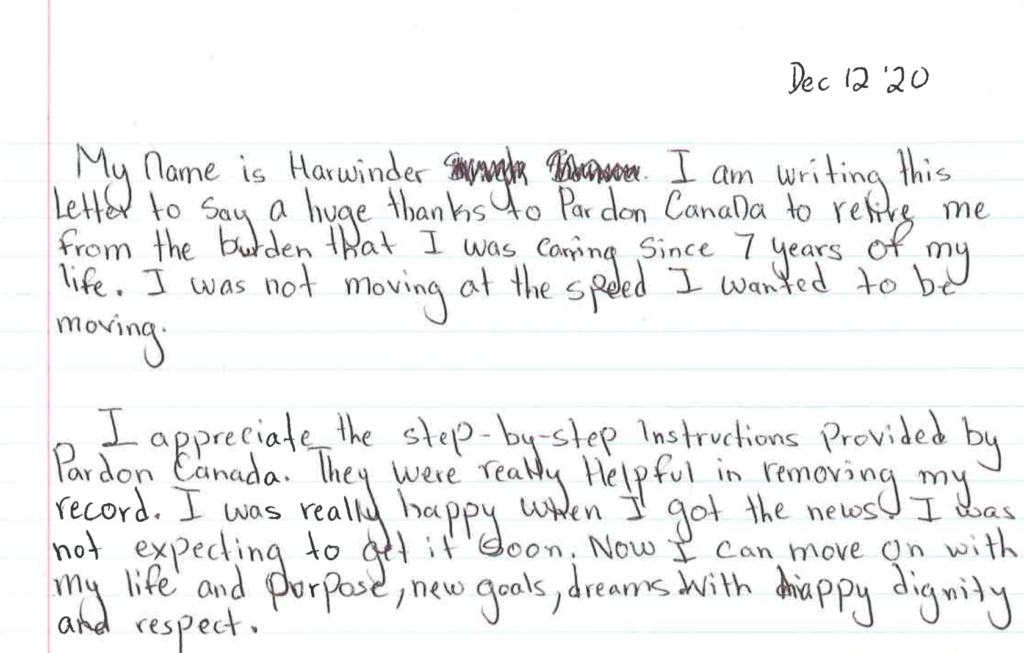 Dec 12 '20
My Name is Harwinder. I am writing this
Letter to Say a huge thanks to Pardon CanaDa to relive me
from the burden that I was carring Since 7 years of my
life. I was not moving at the speed I wanted to be
moving.
I appreciate the step-by-step Instructions Provided by
Pardon Canada. They were really Helpful in removing my
record. I was really happy when I got the news! I was
not expecting to get it soon. Now I can move on with
my life and porpose, new goals, dreams with happy dignity
and respect.